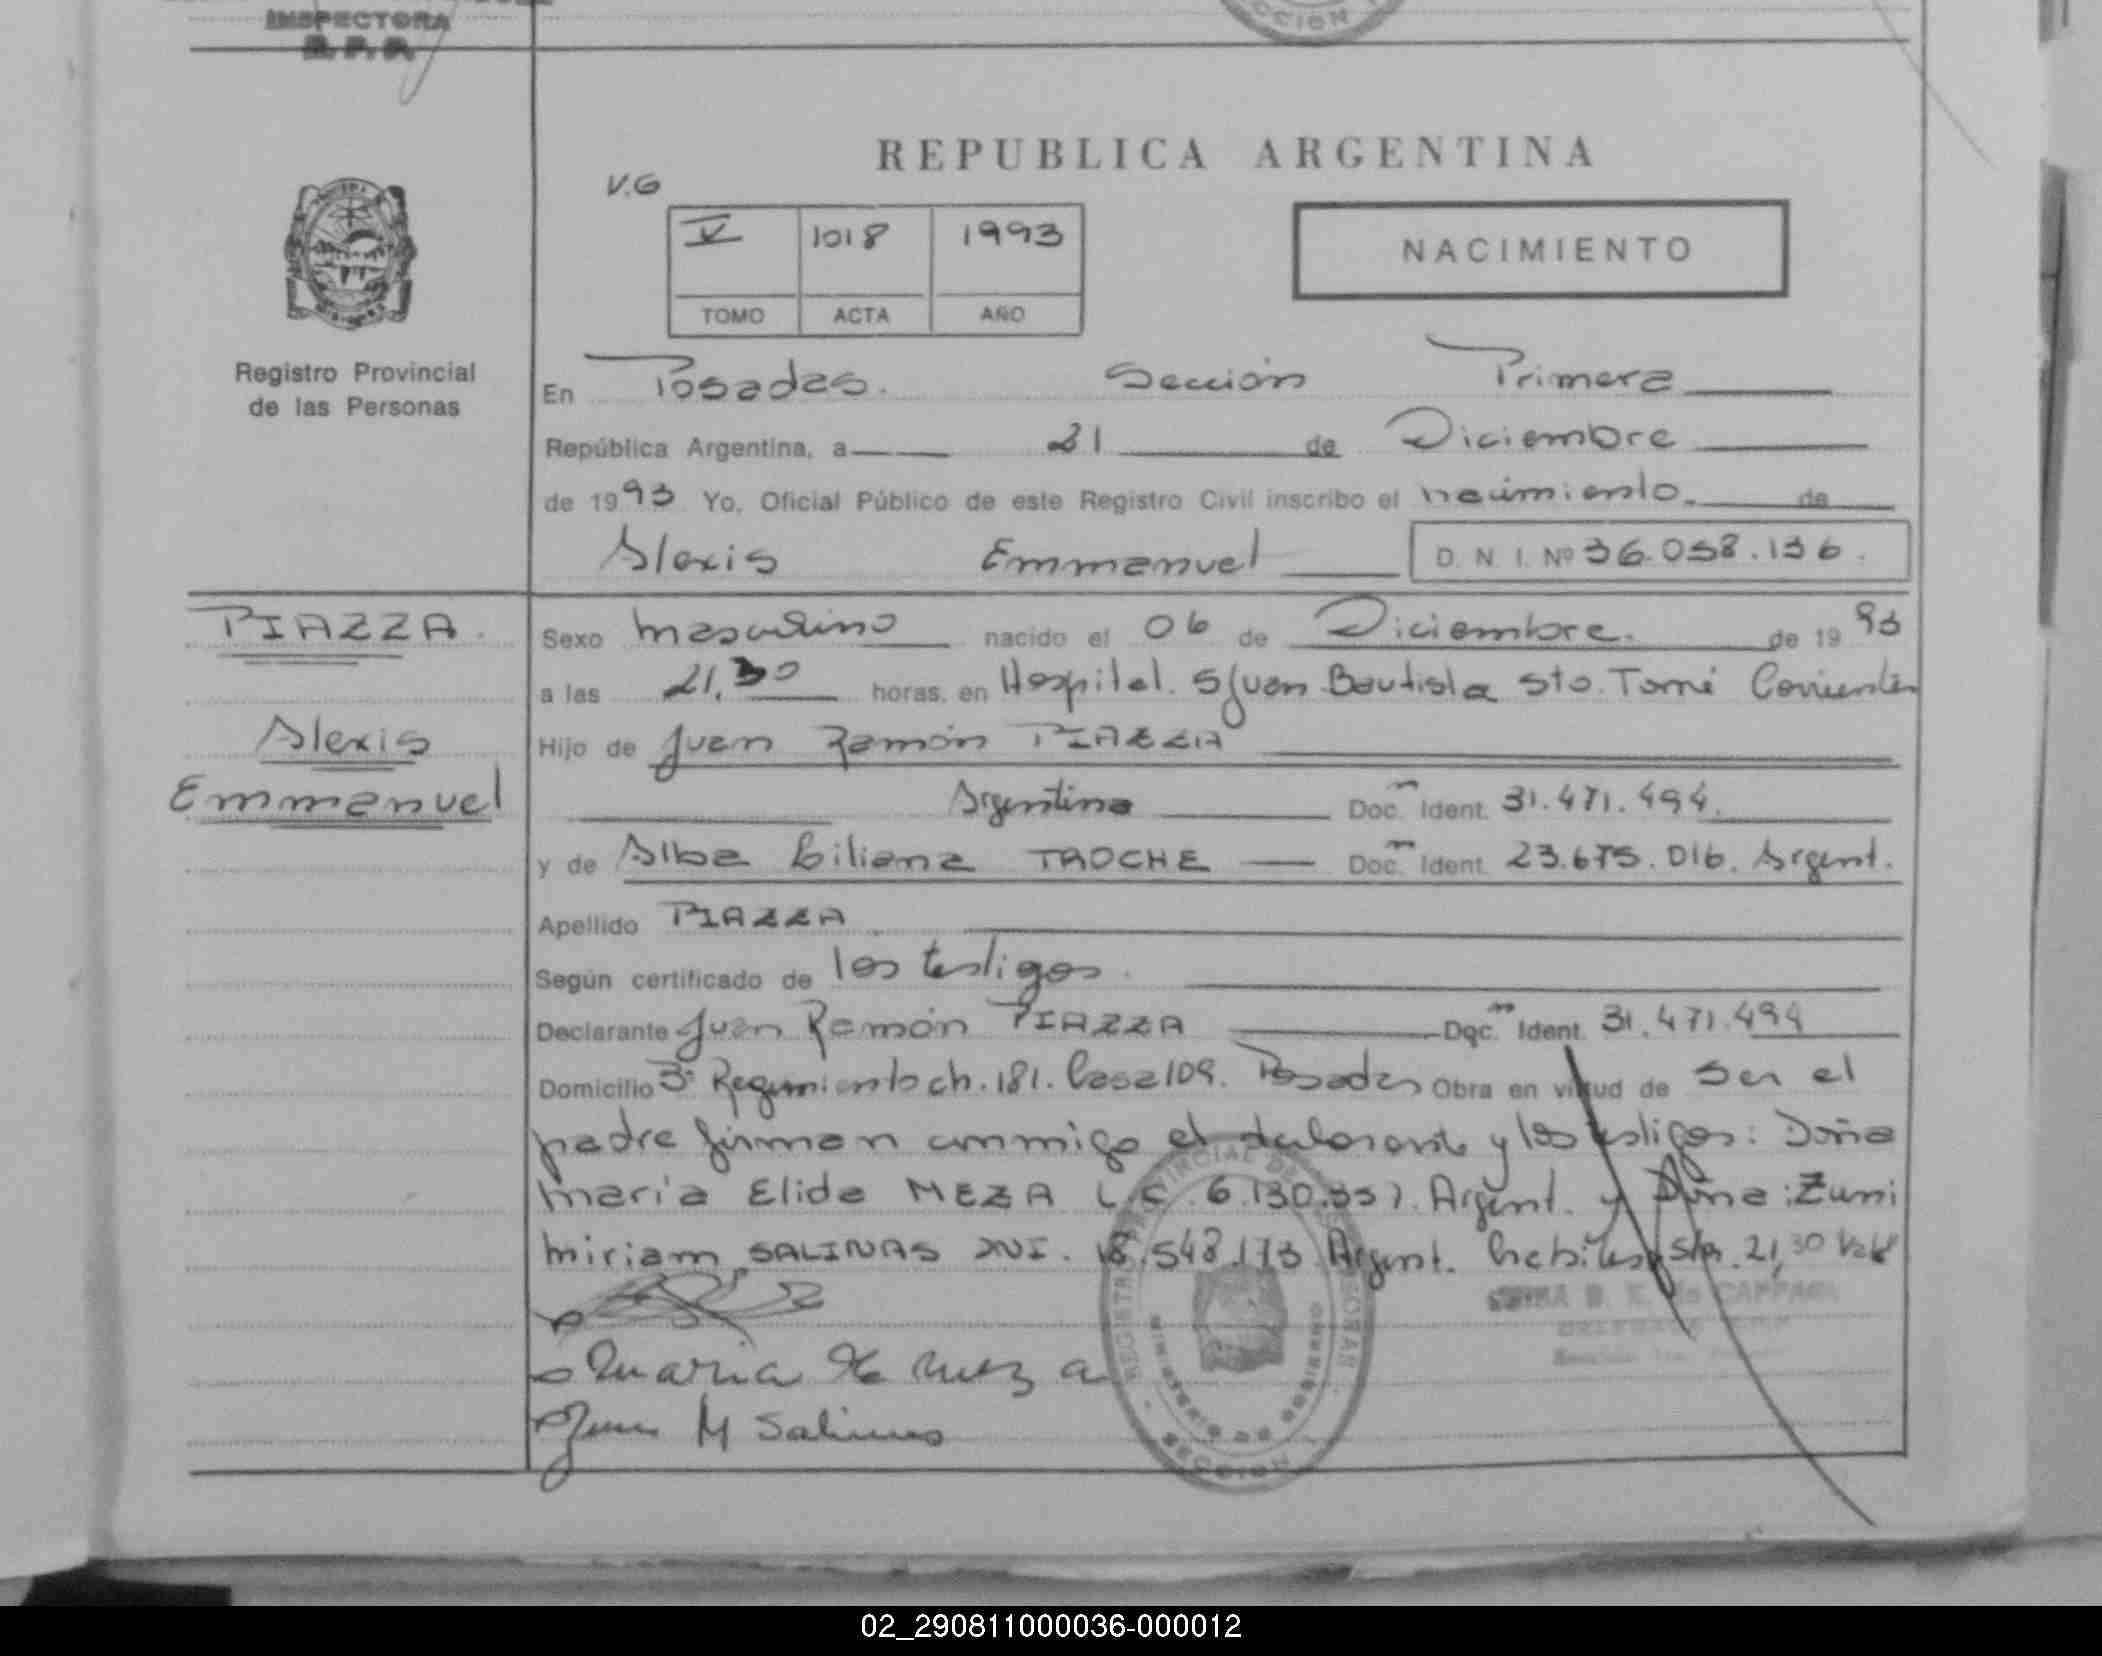 INSPECTORA
R. P. P.
CCION
REPUBLICA ARGENTINA
V.G
V 1018 1993
TOMO ACTA AÑO
NACIMIENTO
Registro Provincial
de las Personas
En Posadas. Sección Primera
República Argentina, a 21 de Diciembre
de 1993 Yo, Oficial Público de este Registro Civil inscribo el nacimiento. de
Alexis Emmanuel D. N. I. Nº 36.058.136.
PIAZZA.
Alexis
Emmanuel
Sexo masculino nacido el 06 de Diciembre. de 1993
a las 21,30 horas, en Hospital. S/Juan Bautista Sto. Tomé Corrientes
Hijo de Juan Ramón PIAZZA
Argentino Doc. Ident. 31.471.494.
y de Alba Liliana TROCHE Doc. Ident. 23.675.016. Argent.
Apellido PIAZZA
Según certificado de los testigos.
Declarante Juan Ramón PIAZZA Doc. Ident. 31.471.494
Domicilio 3º Regimiento ch. 181. Casa 109. Posadas Obra en virtud de ser el
padre firman conmigo el declarante y los testigos: Doña
María Elida MEZA L.C. 6.130.351. Argent. y Doña: Zuni
Miriam SALINAS DNI. 18.548.173 Argent. hábiles s/r. 21,30 Vale
Maria E Meza
M Salinas
REGISTRO PROVINCIAL DE LAS PERSONAS
MINISTERIO DE GOBIERNO
SECCION 1
02_290811000036-000012